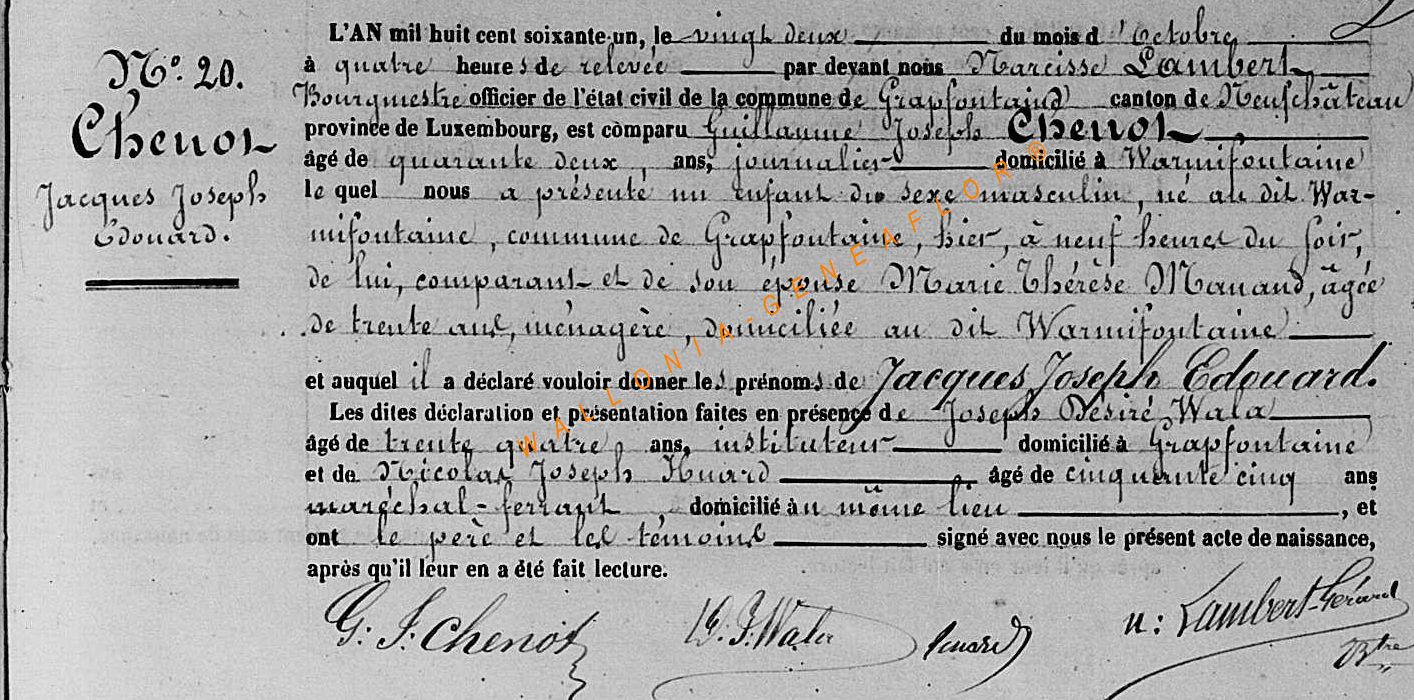 N.º 20.
Chenot
Jacques Joseph
Edouard.
L'AN mil huit cent soixante-un, le vingt deux du mois d'Octobre
à quatre heures de relevée par devant nous Narcisse Lambert
Bourgmestre officier de l'état civil de la commune de Grapfontaine canton de Neufchâteau
province de Luxembourg, est comparu Guillaume Joseph Chenot,
âgé de quarante deux ans, journalier domicilié à Warmifontaine
le quel nous a présenté un enfant du sexe masculin, né au dit War-
mifontaine, commune de Grapfontaine, hier, à neuf heures du soir,
de lui, comparant et de son épouse Marie Thérèse Manand, âgée
de trente ans, ménagère, domiciliée au dit Warmifontaine
et auquel il a déclaré vouloir donner les prénoms de Jacques Joseph Edouard.
Les dites déclaration et présentation faites en présence de Joseph Désiré Wala
âgé de trente quatre ans, instituteur domicilié à Grapfontaine
et de Nicolas Joseph Huard âgé de cinquante cinq ans
maréchal-ferrant, domicilié au même lieu, et
ont le père et les témoins signé avec nous le présent acte de naissance,
après qu'il leur en a été fait lecture.
G. J. Chenot
Huard
n: Lambert-Gérard
Btre
WALLONIA-GENEAFLOR®